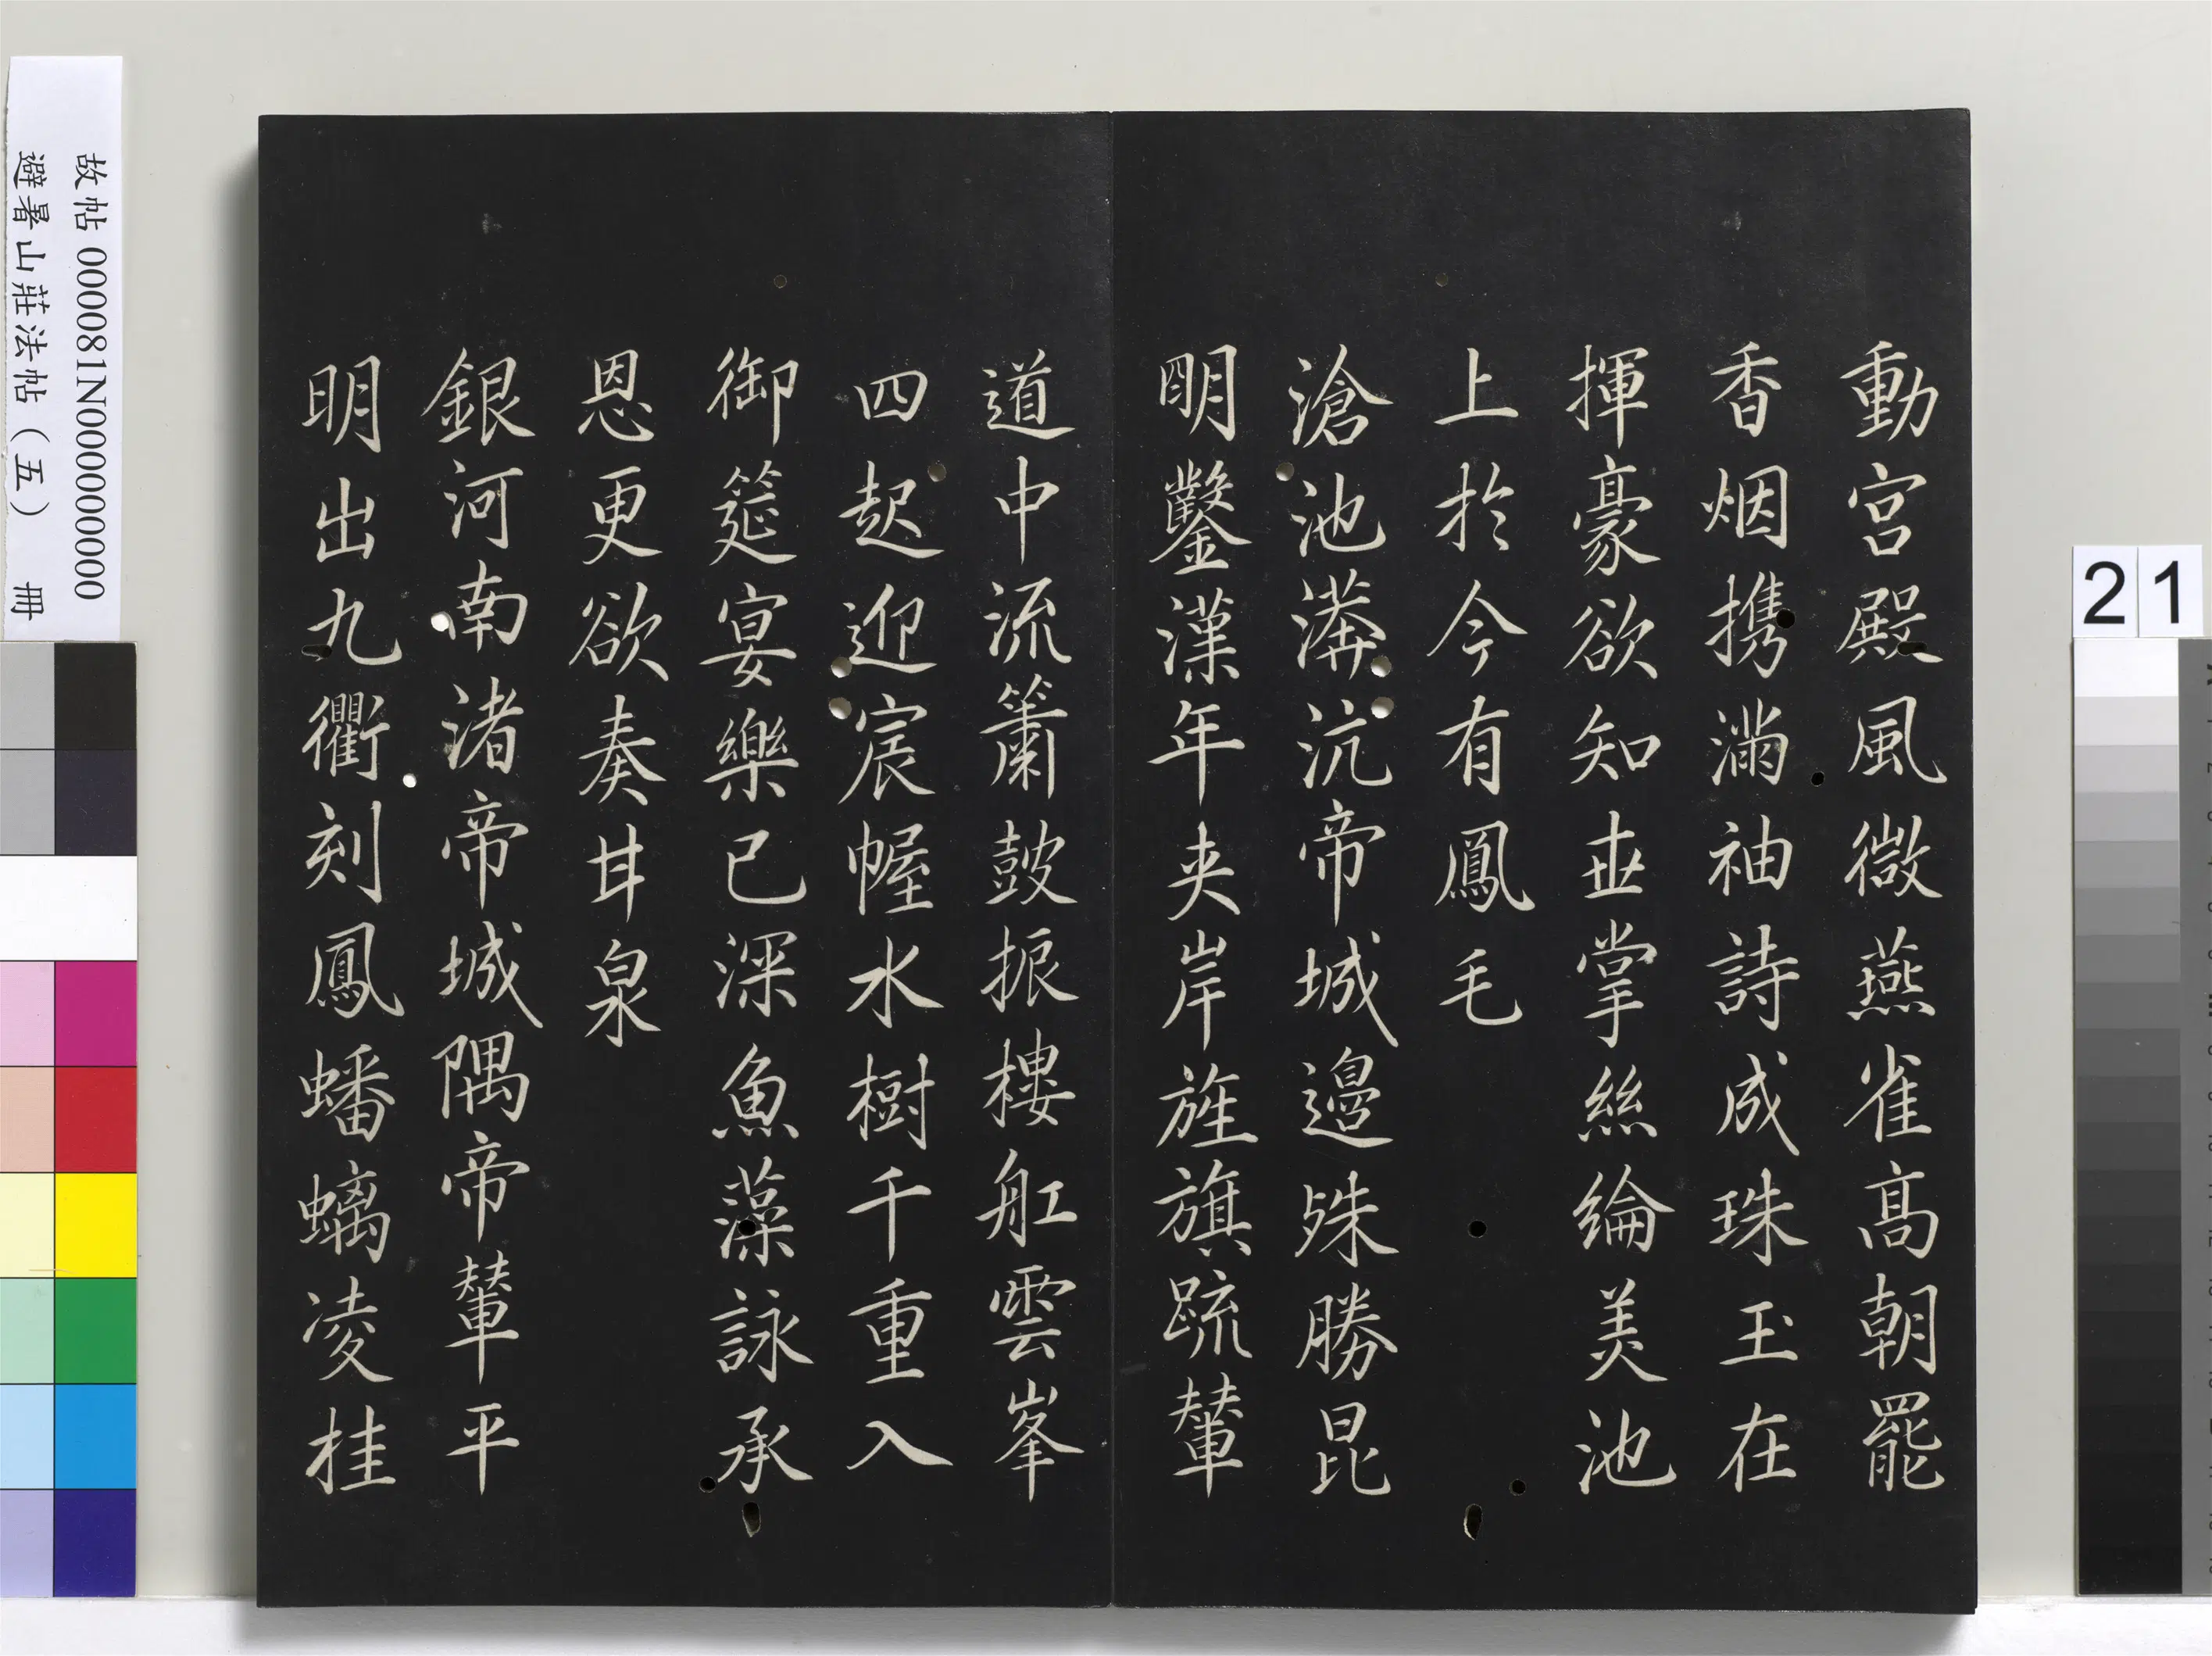 動宮殿風微燕雀高朝罷
香烟携滿袖詩成珠玉在
揮豪欲知世掌絲綸美池
上於今有鳳毛
滄池漭沆帝城邊殊勝昆
明鑿漢年夾岸旌旗疏輦
道中流簫鼓振樓舡雲峯
四起迎宸幄水樹千重入
御筵宴樂已深魚藻詠承
恩更欲奏甘泉
銀河南渚帝城隅帝輦平
明出九衢刻鳳蟠螭凌桂
故帖 000081N000000000
避暑山莊法帖（五） 冊
21